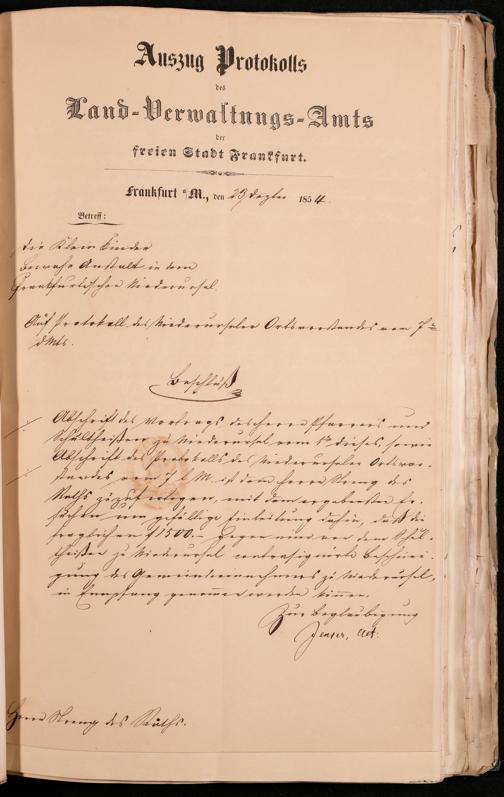 Auszug Protokolls
des
Land-Verwaltungs-Amts
der
freien Stadt Frankfurt.
Frankfurt a/M., den 23 Dezber 1854.
Betreff:
die Kleinkinder
Bewahr Anstalt in dem
Frankfurtischen Niederursel.
Auf Protokoll des Niederurseler Ortsvorstandes vom 7ten
dMts.
Beschluß
Abschrift des Vortrags des Herrn Pfarrers und
Schultheißen zu Niederursel vom dieses sowie
Abschrift des Protokolls des Niederurseler Ortsvor-
standes vom 7 d. M. ist dem Herrn des
Raths zuzufertigen, mit dem ergebensten Er-
suchen um gefällige Einleitung dahin, daß die
fraglichen f 1500.- gegen eine von dem Schul-
theißen zu Niederursel contrasignirte Bescheini-
gung des Gemeindeeinnehmers zu Niederursel,
in Empfang genommen werden können.
Zur Beglaubigung
Act:
Herrn des Raths.